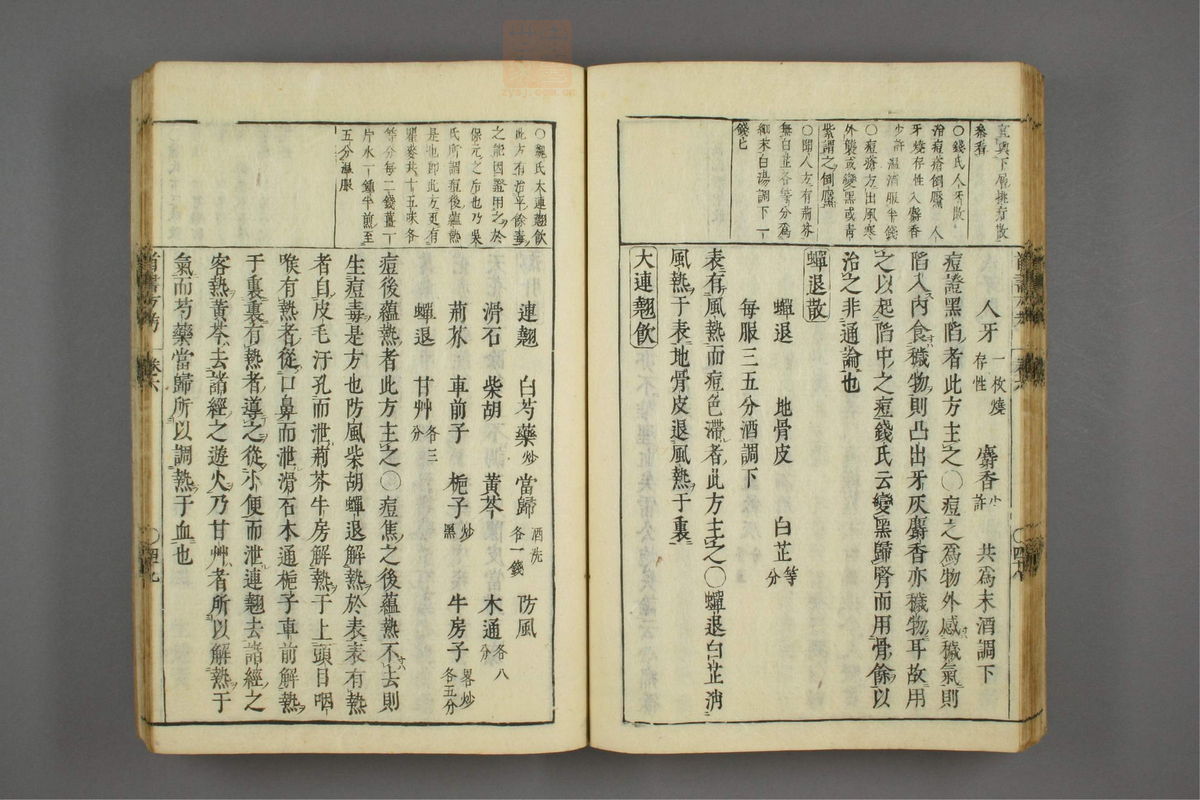 宜與下層排奇散
參看
〇錢氏人牙散
治痘瘡倒黶 人
牙燒存性入麝香
少許 溫酒服半錢
〇痘瘡方出風寒
外襲或變黑或青
紫謂之倒黶
〇歸人方有荊芥
無白芷各等分爲
細末白湯調下一
錢匕
人牙一枚燒存性 麝香少許 共爲末酒調下
痘證黑陷者此方主之〇痘之爲物外感穢氣則
陷入內食穢物則凸出牙灰麝香亦穢物耳故用
之以起陷中之痘錢氏云變黑歸腎而用骨餘以
治之非通論也
蟬退散
蟬退 地骨皮 白芷等分
每服三五分酒調下
表有風熱而痘色滯者此方主之〇蟬退白芷消
風熱于表地骨皮退風熱于裏
大連翹飲
〇魏氏大連翹飲
此方有治平餘毒
之能因證用之於
保元之后也乃吳
氏所謂痘後蘊熱
是也即此方更有
瞿麥共十五味各
等分每二錢薑一
片水一鍾半煎至
五分溫服
連翹 白芍藥炒 當歸酒洗各一錢 防風
滑石 柴胡 黃芩 木通各八分
荊芥 車前子 梔子炒黑 牛房子畧炒各五分
蟬退 甘艸各三分
痘後蘊熱者此方主之〇痘焦之後蘊熱不去則
生痘毒是方也防風柴胡蟬退解熱於表表有熱
者自皮毛汗孔而泄荊芥牛房解熱于上頭目咽
喉有熱者從口鼻而泄滑石木通梔子車前解熱
于裏裏有熱者導之從小便而泄連翹去諸經之
客熱黃芩去諸經之遊火乃甘艸者所以解熱于
氣而芍藥當歸所以調熱于血也